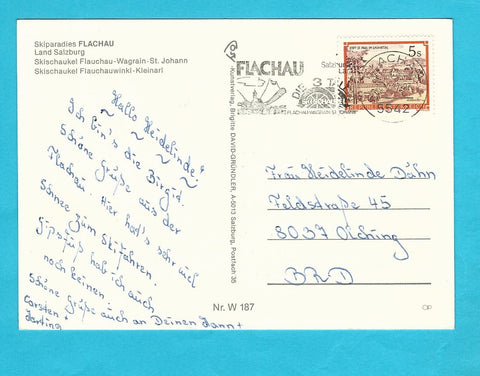 Skiparadies FLACHAU
Land Salzburg
Skischaukel Flauchau-Wagrain-St. Johann
Skischaukel Flauchauwinkl-Kleinarl
Hallo Heidelinde!
Ich bin's die Birgid.
Schöne Grüße aus der
Flachau. Hier hod's sehr viel
Schnee zum Skifahren.
Gipsfuß hab ich auch
noch keinen.
Schöne Grüße auch an Deinen Mann +
Carsten +
-Kunstverlag, Brigitte DAVID-GRÜNDLER, A-5013 Salzburg, Postfach 35
FLACHAU
Salzburger
3 T
FLACHAU-WAGRAIN-ST. JOHANN
5542
5s
REPUBLIK ÖSTERREICH
Frau Heidelinde Dähn
Feldstraße 45
8037 Olching
BRD
Nr. W 187